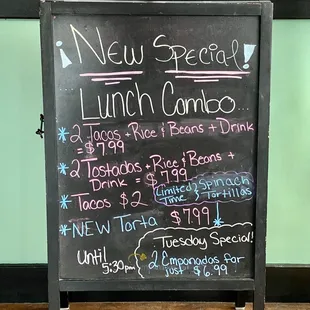 ¡New Special!
Lunch Combo...
* 2 Tacos + Rice & Beans + Drink
= $7.99
* 2 Tostadas + Rice & Beans +
Drink = $7.99
* Tacos $2
Limited Time Spinach Tortillas
* NEW Torta $7.99
Until
5:30pm
Tuesday Special!
2 Empanadas for
just $6.99